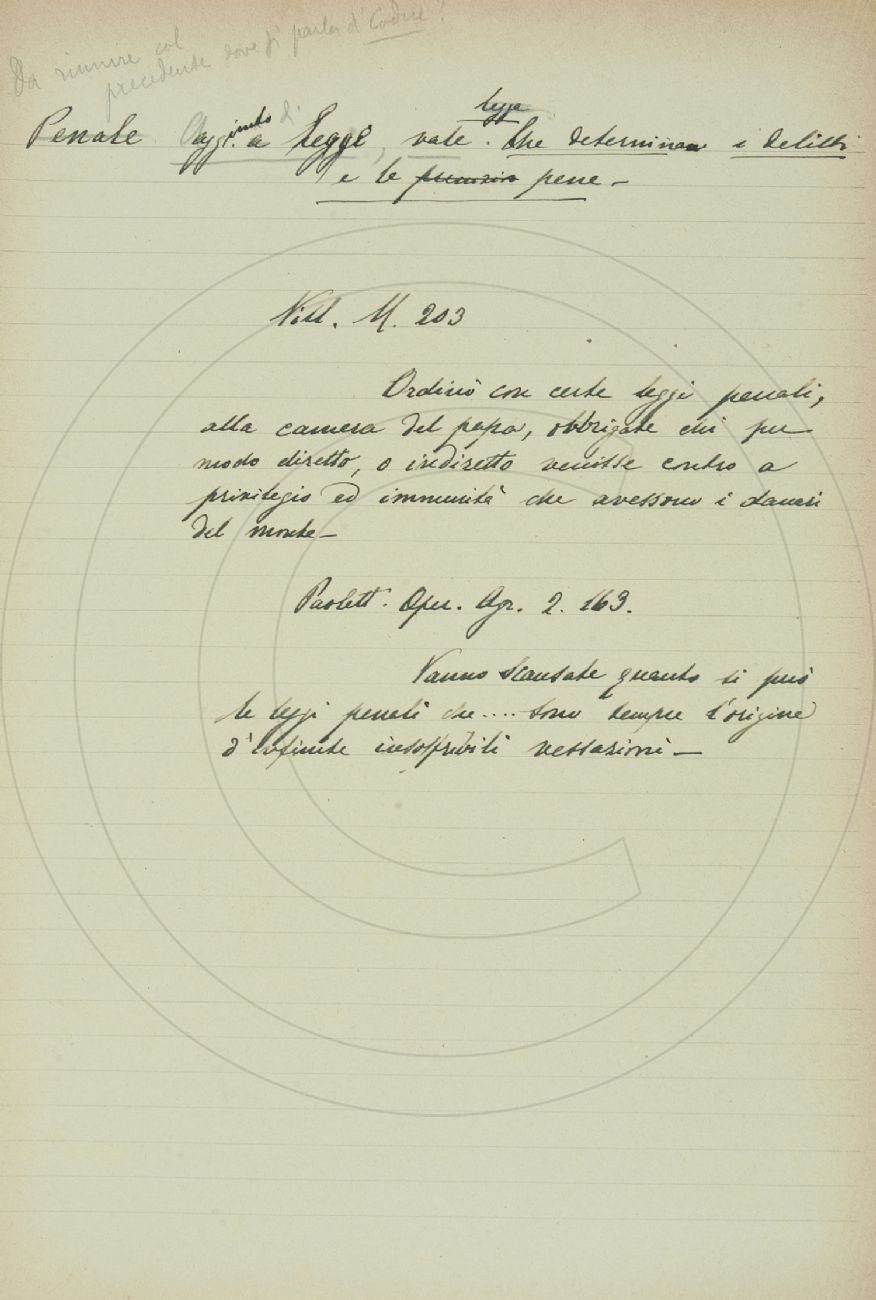 Da riunire col
precedente dove si parla di Codice!
Penale Aggiunto a Legge, vale. legge Che determinan i delitti
e le pene –
Vill. M. 203
Ordinò con certe leggi penali,
alla camera del papa, obbrigate chi per
modo diretto, o indiretto venisse contro a
privilegio ed immunità che avessono i danari
del monte –
Paolett. Oper. Agr. 2. 163.
Vanno scansate quanto si può
le leggi penali che .... sono sempre l'origine
d'infinite insoffribili vessazioni –